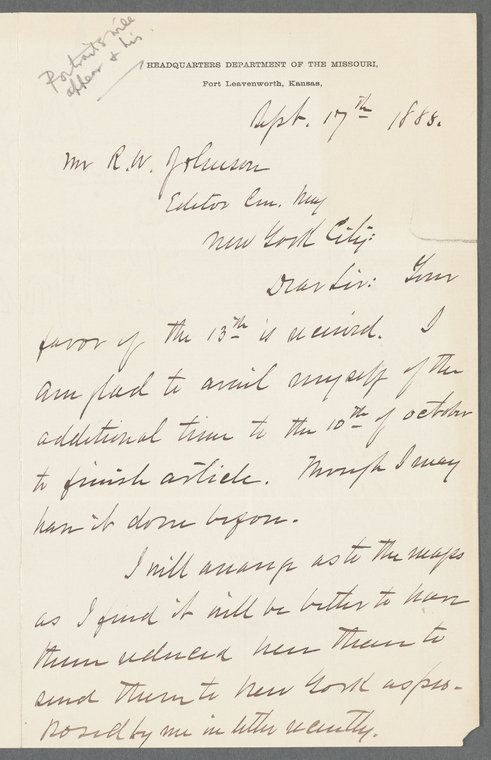 Portraits will
appear & his
HEADQUARTERS DEPARTMENT OF THE MISSOURI,
Fort Leavenworth, Kansas,
Sept. 17th 1885.
Mr R. W. Johnson
Editor Cen. Mag
New York City:
Dear Sir: Your
favor of the 13th is received. I
am glad to avail myself of the
additional time to the 10th of october
to finish article. Though I may
have it done before.
I will arrange as to the maps
as I find it will be better to have
them reduced here than to
send them to New York as pro-
posed by me in letter recently.